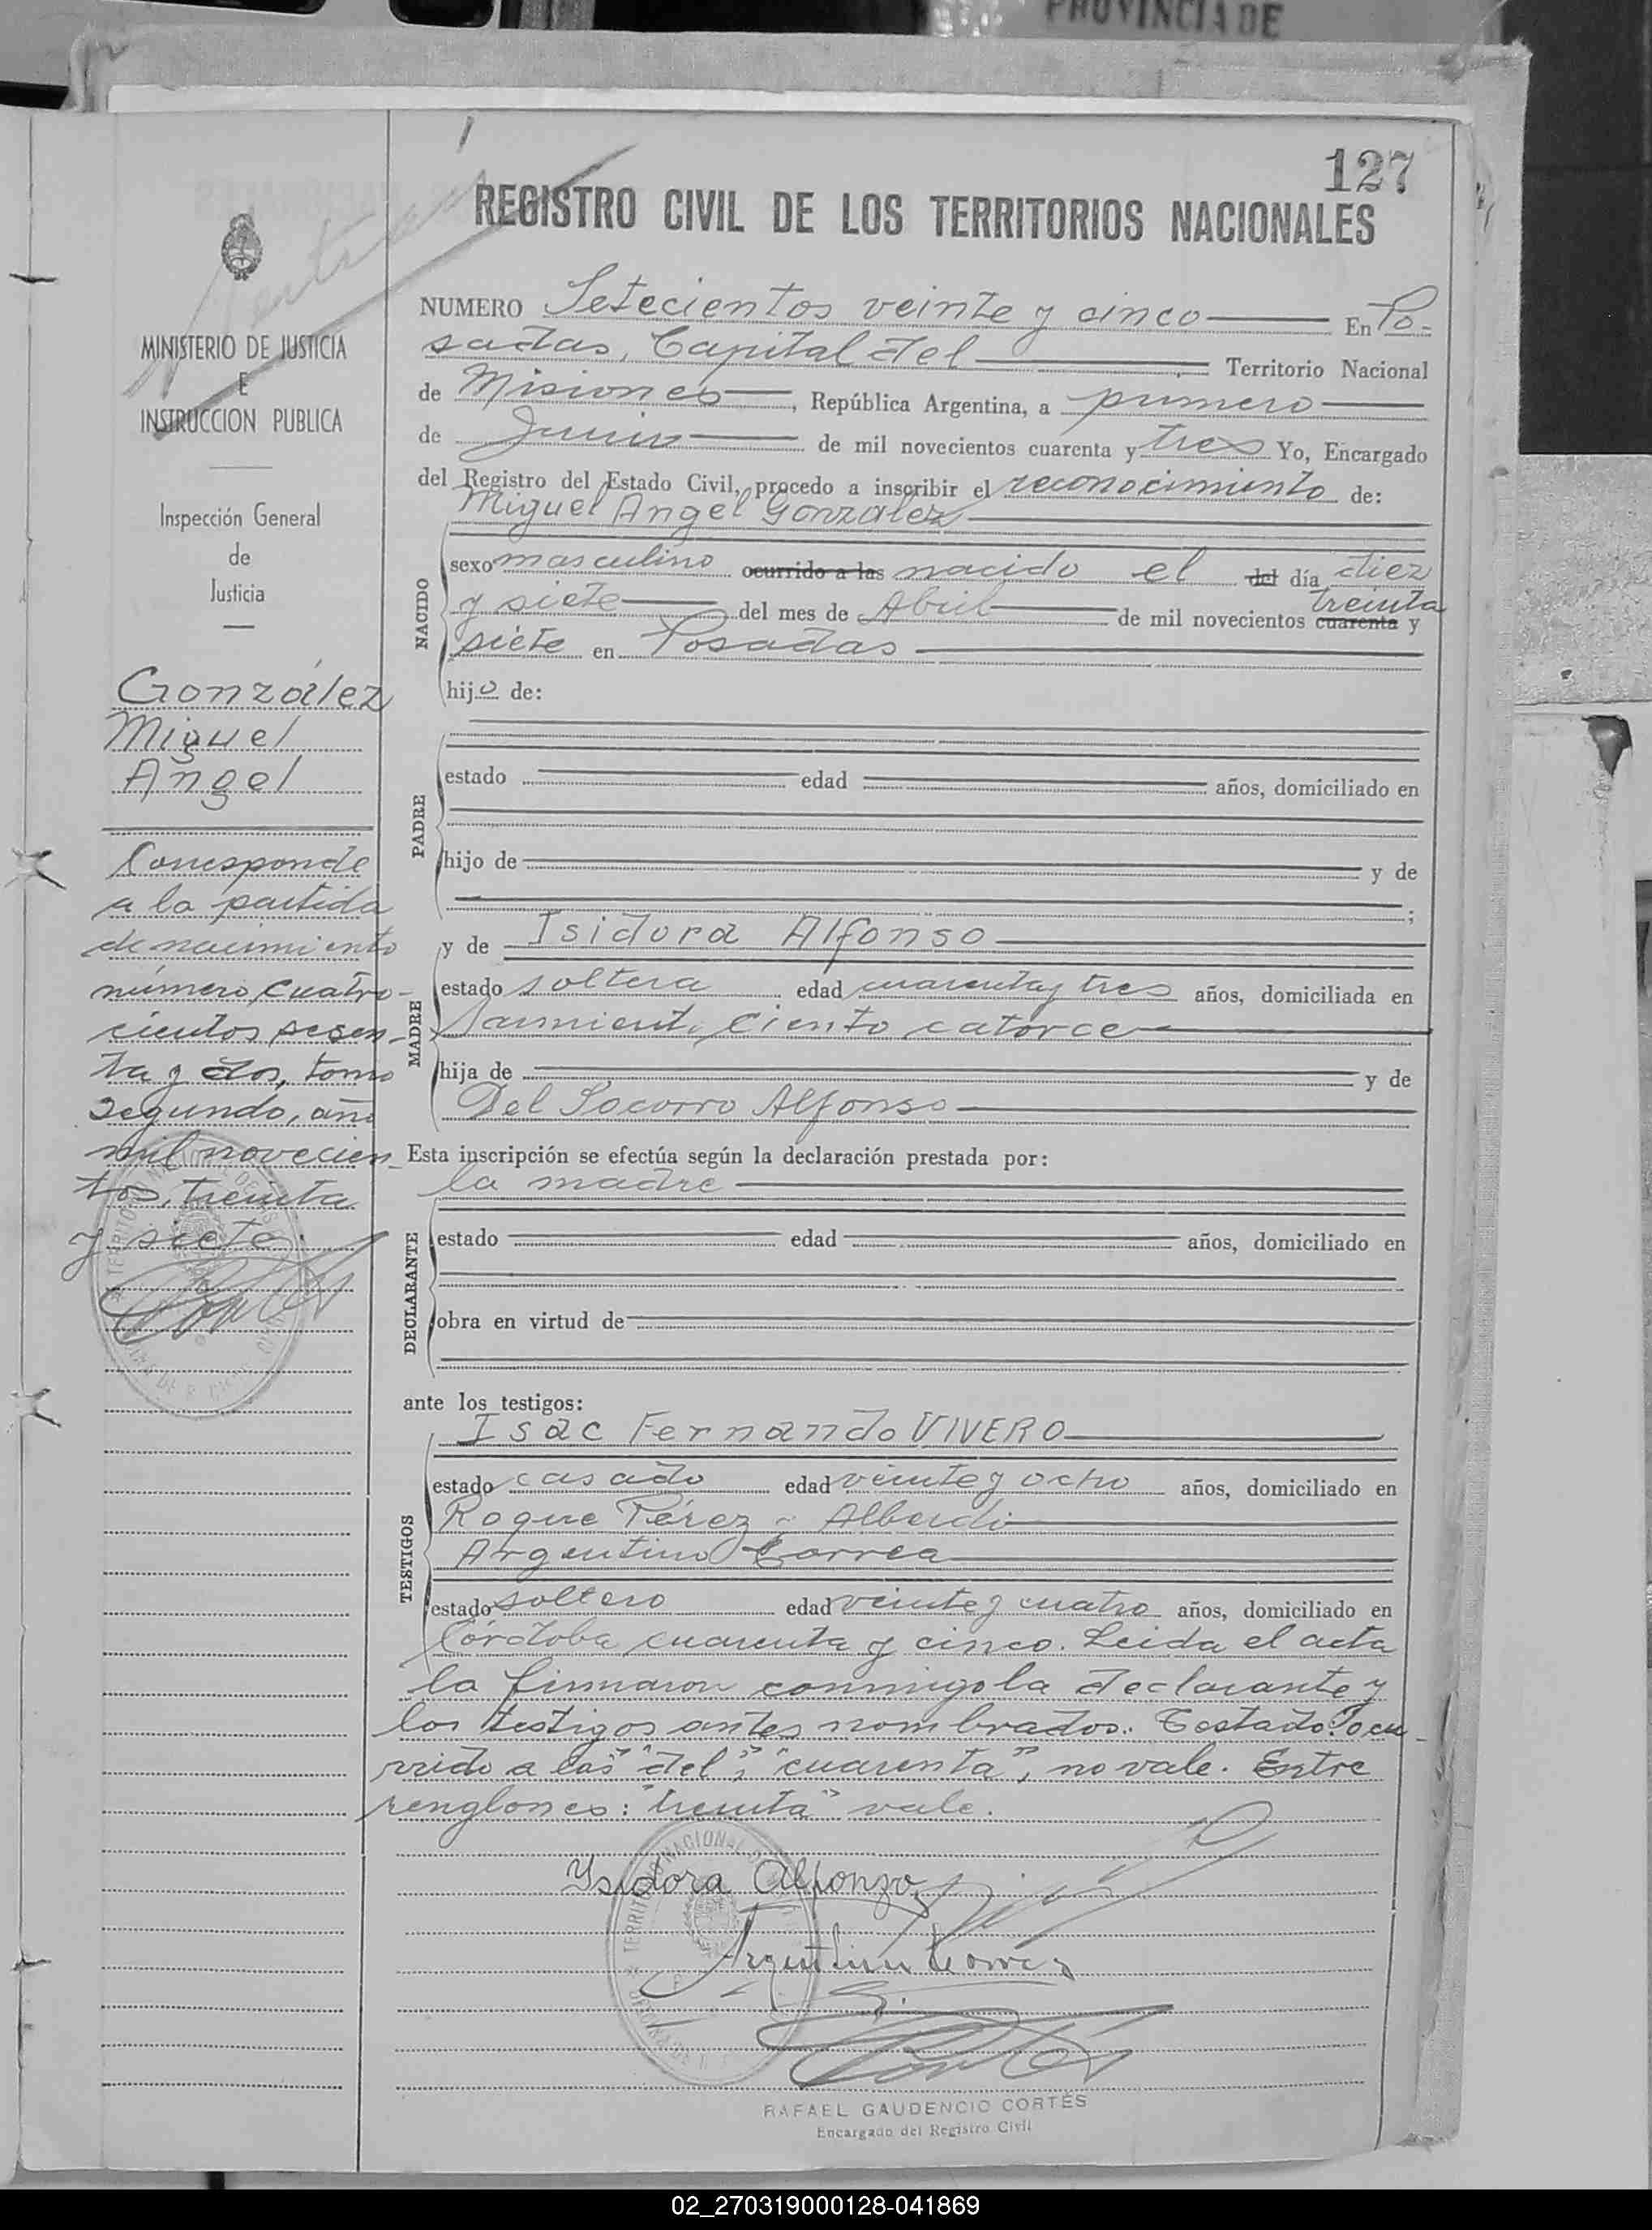 PROVINCIA DE
127
REGISTRO CIVIL DE LOS TERRITORIOS NACIONALES
MINISTERIO DE JUSTICIA
E
INSTRUCCION PUBLICA
Inspección General
de
Justicia
González
Miguel
Angel
Corresponde
a la partida
de nacimiento
número cuatro-
cientos sesen-
ta y dos, tomo
segundo, año
mil novecien-
tos, treinta
y siete.
NUMERO Setecientos veinte y cinco En Po-
sadas, Capital del Territorio Nacional
de Misiones, República Argentina, a primero
de Junio de mil novecientos cuarenta y tres Yo, Encargado
del Registro del Estado Civil, procedo a inscribir el reconocimiento de:
Miguel Angel González
NACIDO
sexo masculino ocurrido a las nacido el del día diez
y siete del mes de Abril de mil novecientos cuarenta treinta y
siete en Posadas
hijo de:
PADRE
estado edad años, domiciliado en
hijo de y de
;
MADRE
y de Isidora Alfonso
estado soltera edad cuarenta y tres años, domiciliada en
Sarmiento ciento catorce
hija de y de
Del Socorro Alfonso
Esta inscripción se efectúa según la declaración prestada por:
la madre
DECLARANTE
estado edad años, domiciliado en
obra en virtud de
ante los testigos:
TESTIGOS
Isac Fernando VIVERO
estado casado edad veinte y ocho años, domiciliado en
Roque Pérez y Alberdi
Argentino Correa
estado soltero edad veinte y cuatro años, domiciliado en
Córdoba cuarenta y cinco. Leida el acta
la firmaron conmigo la declarante y
los testigos antes nombrados. Testado: "ocu-
rrido a las" "del"; "cuarenta", no vale. Entre
renglones: "treinta" vale.
Ysidora Alfonzo
Argentino Correa
RAFAEL GAUDENCIO CORTÉS
Encargado del Registro Civil
02_270319000128-041869